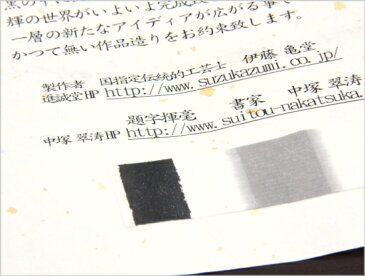 輝の世界がいよいよ完成致
一層の新たなアイディアが広がる事で
かつて無い作品造りをお約束致します。
製作者 国指定伝統的工芸士 伊藤 亀堂
進誠堂HP http://www.suzukazumi.co.jp/
題字揮毫 書家 中塚 翠涛
中塚 翠涛HP http://www.suitou-nakatsuka.